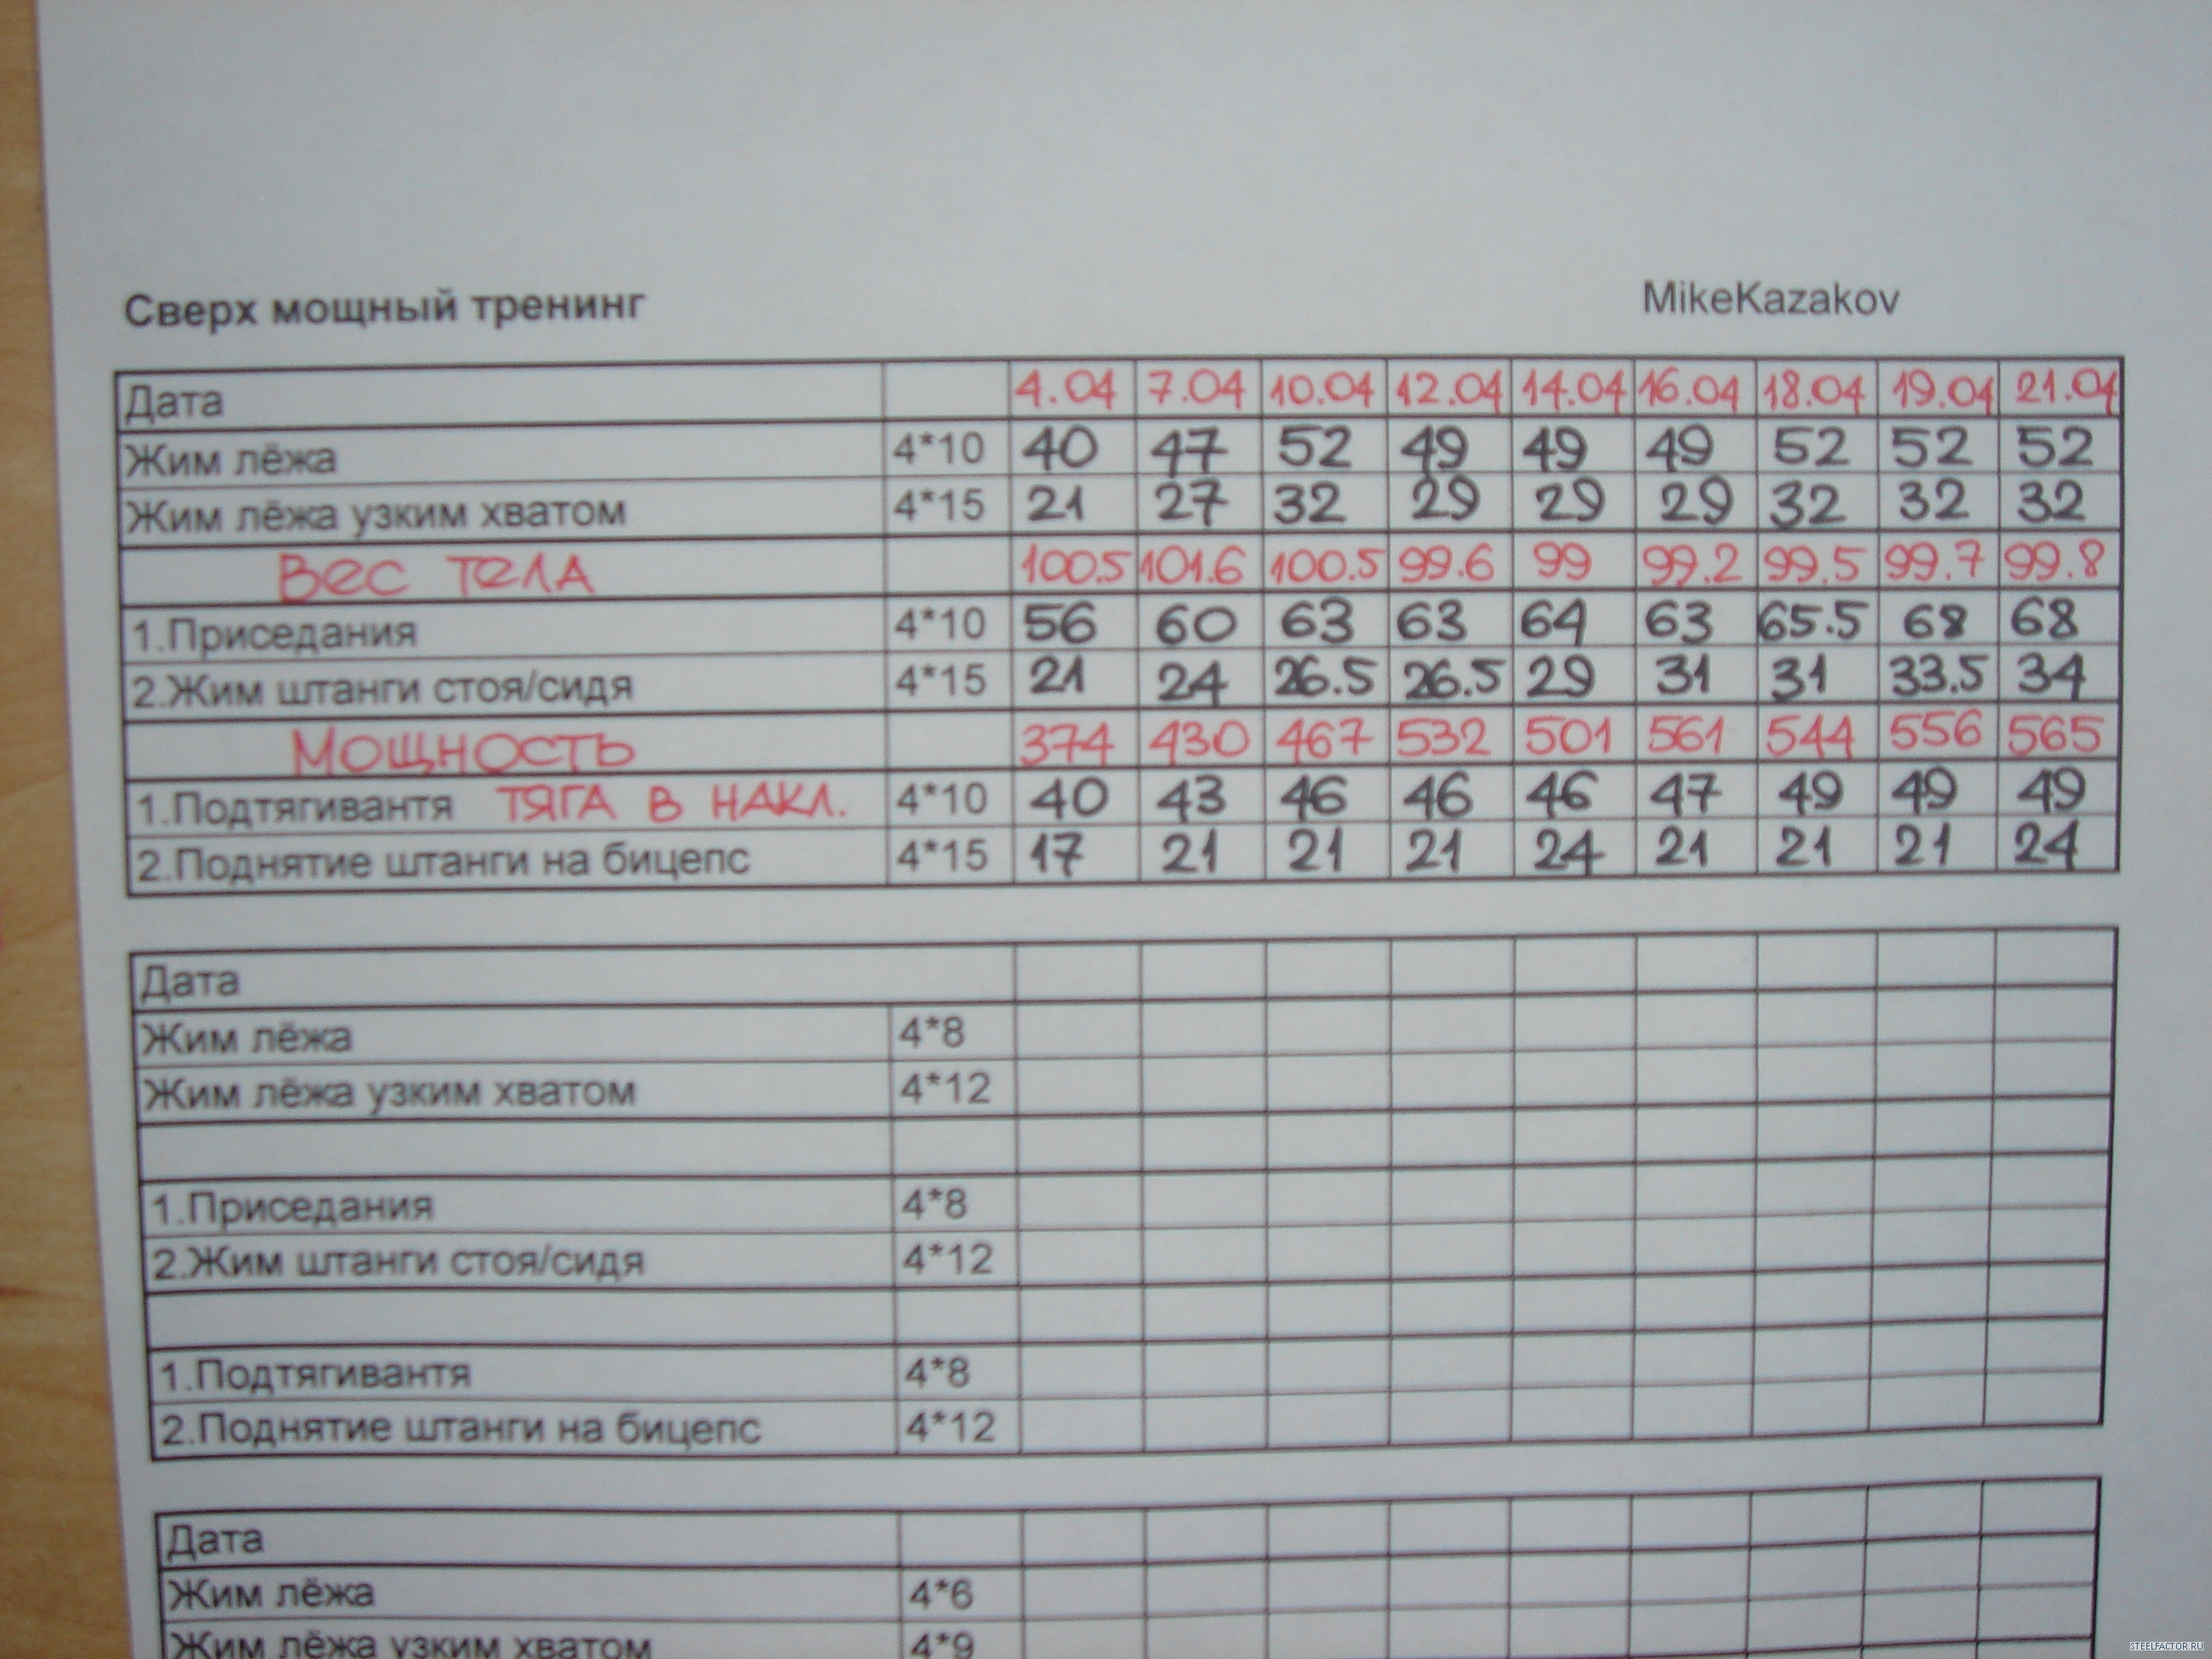 Сверх мощный тренинг MikeKazakov
Дата 4.04 7.04 10.04 12.04 14.04 16.04 18.04 19.04 21.04
Жим лёжа 4*10 40 47 52 49 49 49 52 52 52
Жим лёжа узким хватом 4*15 21 27 32 29 29 29 32 32 32
Вес тела 100.5 101.6 100.5 99.6 99 99.2 99.5 99.7 99.8
1.Приседания 4*10 56 60 63 63 64 63 65.5 68 68
2.Жим штанги стоя/сидя 4*15 21 24 26.5 26.5 29 31 31 33.5 34
Мощность 374 430 467 532 501 561 544 556 565
1.Подтягивантя ТЯГА В НАКЛ. 4*10 40 43 46 46 46 47 49 49 49
2.Поднятие штанги на бицепс 4*15 17 21 21 21 24 21 21 21 24
Дата
Жим лёжа 4*8
Жим лёжа узким хватом 4*12
1.Приседания 4*8
2.Жим штанги стоя/сидя 4*12
1.Подтягивантя 4*8
2.Поднятие штанги на бицепс 4*12
Дата
Жим лёжа 4*6
Жим лёжа узким хватом 4*9
STEELFACTOR.RU